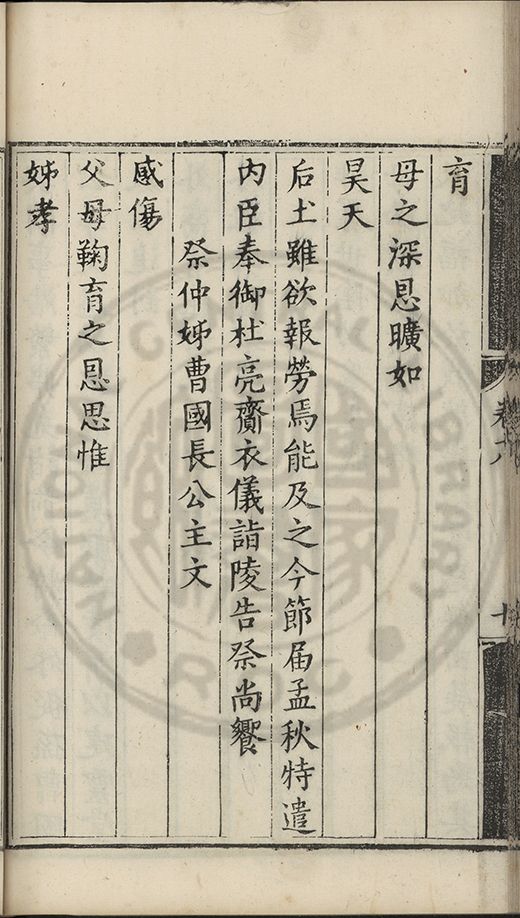 育
母之深恩曠如
昊天
后土雖欲報勞焉能及之今節届孟秋特遣
内臣奉御杜亮齎衣儀詣陵告祭尚饗
祭仲姊曹國長公主文
感傷
父母鞠育之恩思惟
姊孝